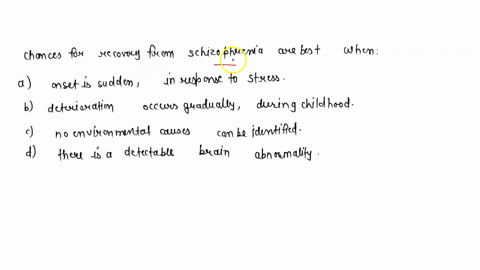 chances for recovery from schizophrenia are best when:
a) onset is sudden, in response to stress.
b) deterioration occurs gradually, during childhood.
c) no environmental causes can be identified.
d) there is a detectable brain abnormality.